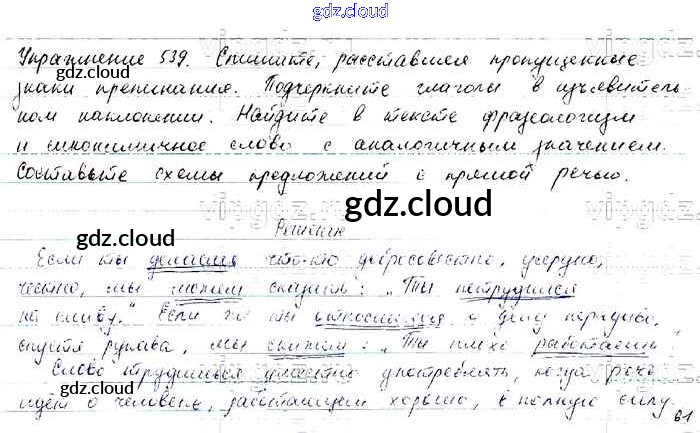 gdz.cloud
Упражнение 539. Спишите, расставляя пропущенные
знаки препинания. Подчеркните глаголы в изъявитель-
ном наклонении. Найдите в тексте фразеологизм
и синонимичное слово с аналогичным значением.
Составьте схемы предложений с прямой речью.
gdz.cloud
gdz.cloud
gdz.cloud
gdz.cloud
gdz.cloud
Решение
Если ты делаешь что-то добросовестно, усердно,
честно, мы можем сказать: „Ты потрудился
на славу." Если же ты относишься к делу нерадиво,
спустя рукава, мы скажем: „Ты плохо работаешь."
Слово трудиться уместно употреблять, когда речь
идёт о человеке, работающем хорошо, в полную силу.
gdz.cloud
gdz.cloud
61